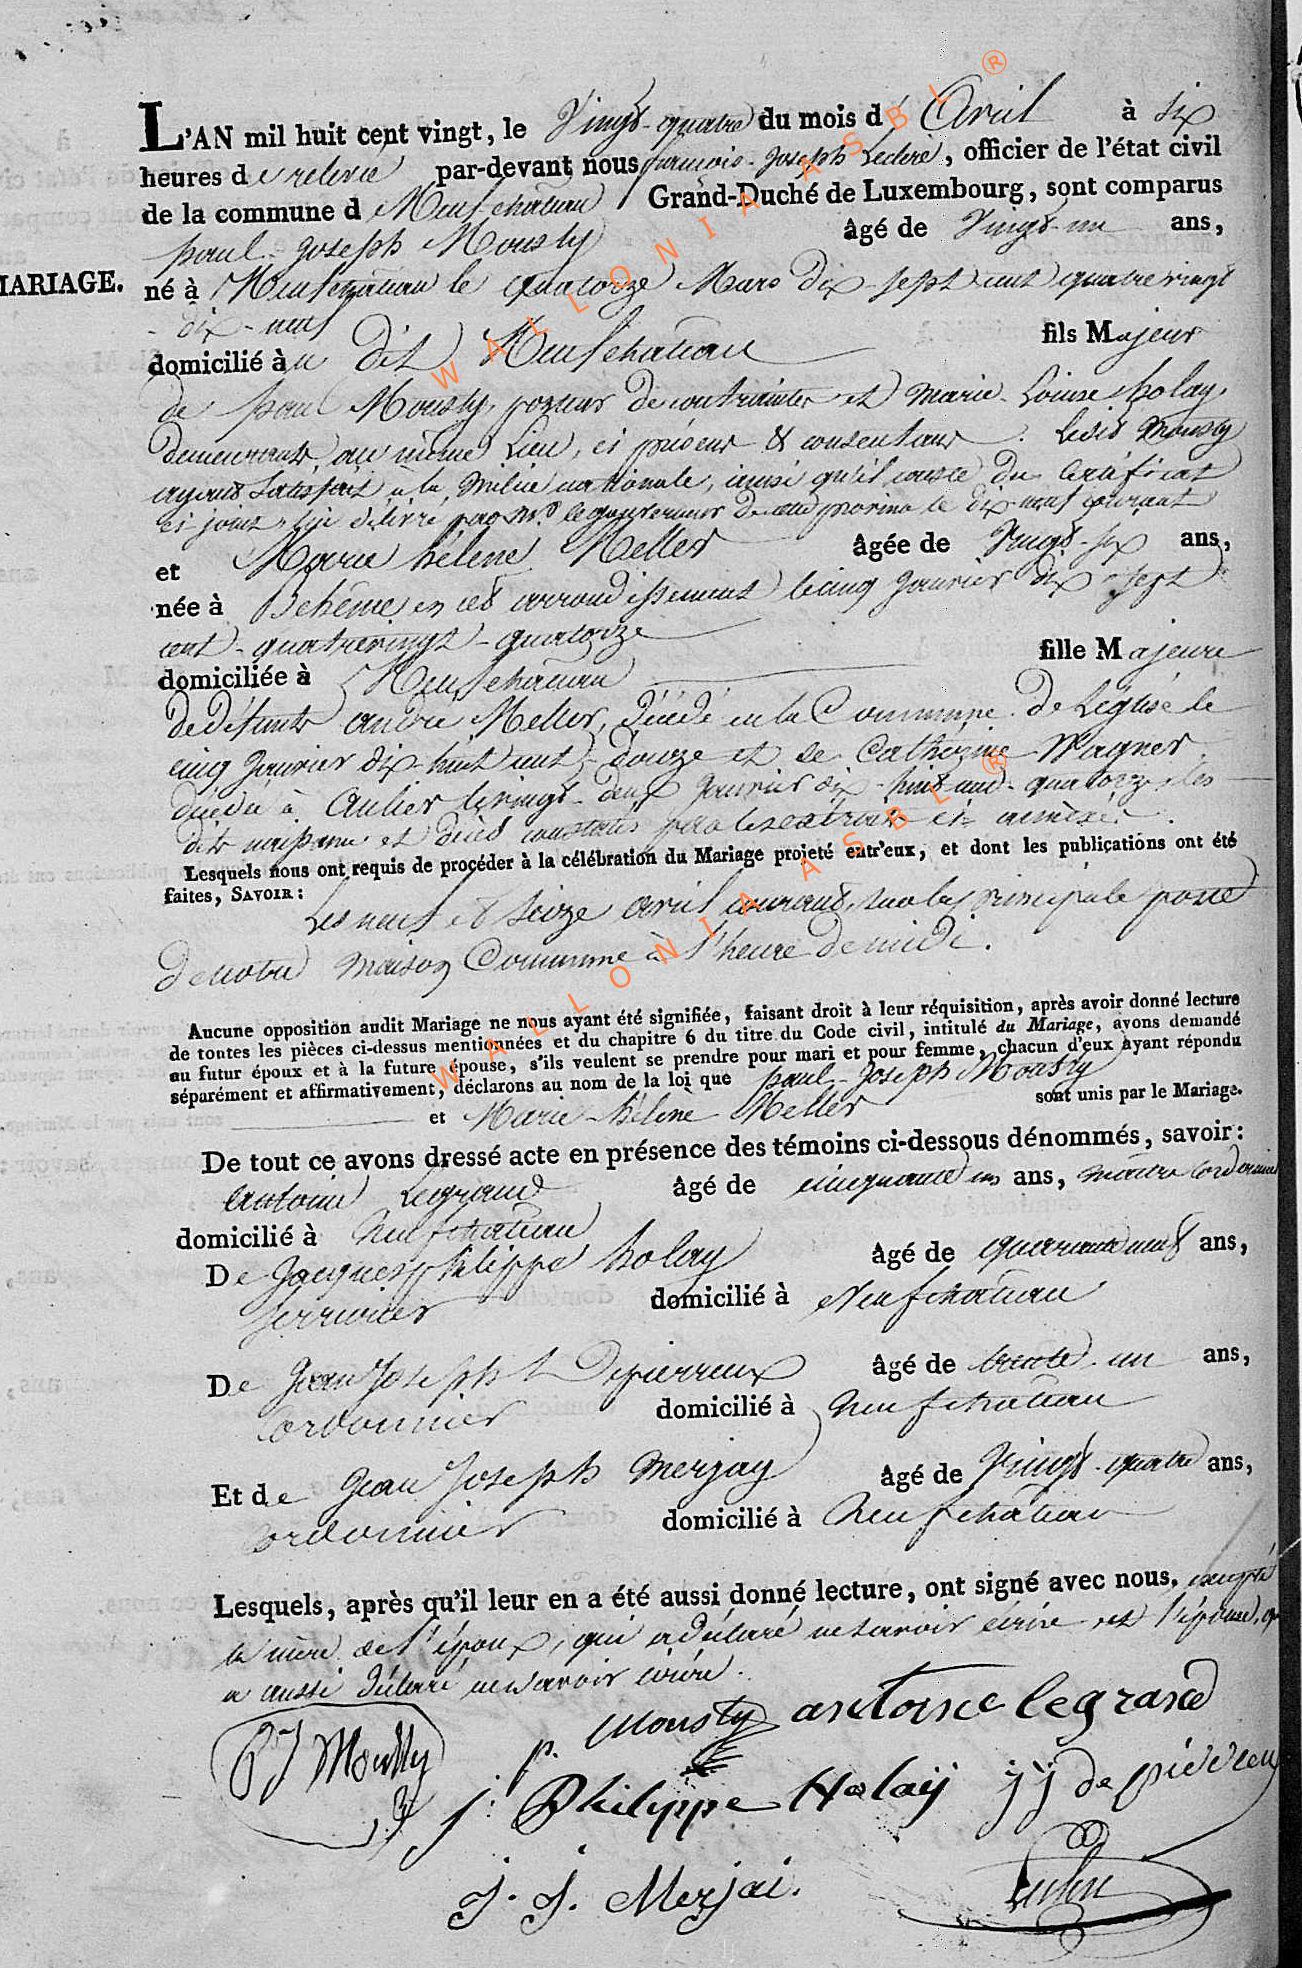 L'AN mil huit cent vingt, le Vingt-quatre du mois d'Avril à six
heures de relevée par-devant nous françois-Joseph Leclere, officier de l'état civil
de la commune d Neufchâteau Grand-Duché de Luxembourg, sont comparus
paul-Joseph Mousty âgé de Vingt-un ans,
MARIAGE.
né à Neufchâteau le quatorze Mars dix-sept cent quatrevingt
-dix-neuf
domicilié au dit Neufchâteau fils Majeur
de paul Mousty, porteur de contraintes et Marie-Louise holay,
demeurants au même Lieu, ci présens & consentans. Ledit Mousty
ayant satisfait à la Milice nationale, ainsi qu'il conste du Certificat
ci joint, lui délivré par Mr. le gouverneur de cette province le dix neuf courant
et Marie hélene Meller âgée de Vingt-six ans,
née à Behême en cet arrondissement le cinq Janvier dix-sept
cent-quatrevingt-quatorze
domiciliée à Neufchâteau fille Majeure
de défunts andré Meller, décédé en la Commune de Léglise le
cinq Janvier dix-huit cent-douze et de Cathérine Wagner
décédée à Anlier le vingt-deux Janvier dix-huit cent-quatorze, les
dits naissance et décès constatés par les extraits ci-annexés.
Lesquels nous ont requis de procéder à la célébration du Mariage projeté entr'eux, et dont les publications ont été
faites, SAVOIR:
Les neuf & seize avril courant, sur la principale porte
de notre maison Commune à l'heure de midi.
Aucune opposition audit Mariage ne nous ayant été signifiée, faisant droit à leur réquisition, après avoir donné lecture
de toutes les pièces ci-dessus mentionnées et du chapitre 6 du titre du Code civil, intitulé du Mariage, avons demandé
au futur époux et à la future épouse, s'ils veulent se prendre pour mari et pour femme, chacun d'eux ayant répondu
séparément et affirmativement, déclarons au nom de la loi que paul-Joseph Mousty
et Marie-hélène Meller sont unis par le Mariage.
De tout ce avons dressé acte en présence des témoins ci-dessous dénommés, savoir:
Antoine Legrand âgé de cinquante un ans, maître cordonnier
domicilié à Neufchâteau
De Jacques philippe holay âgé de quarante neuf ans,
serrurier domicilié à Neufchâteau
De Jean Joseph Depierreux âgé de trente-un ans,
Cordonnier domicilié à Neufchâteau
Et de Jean Joseph Merjay âgé de Vingt-quatre ans,
Cordonnier domicilié à Neufchâteau
Lesquels, après qu'il leur en a été aussi donné lecture, ont signé avec nous, excepté
la mère de l'époux, qui a déclaré ne savoir écrire et l'épouse, qui
a aussi déclaré ne savoir écrire.
PJ Moustÿ
p. Mousty antoine legrand
j: Philippe Holaÿ jj depierreux
J. J. Merjai.
WALLONIA ASBL ®
WALLONIA ASBL ®